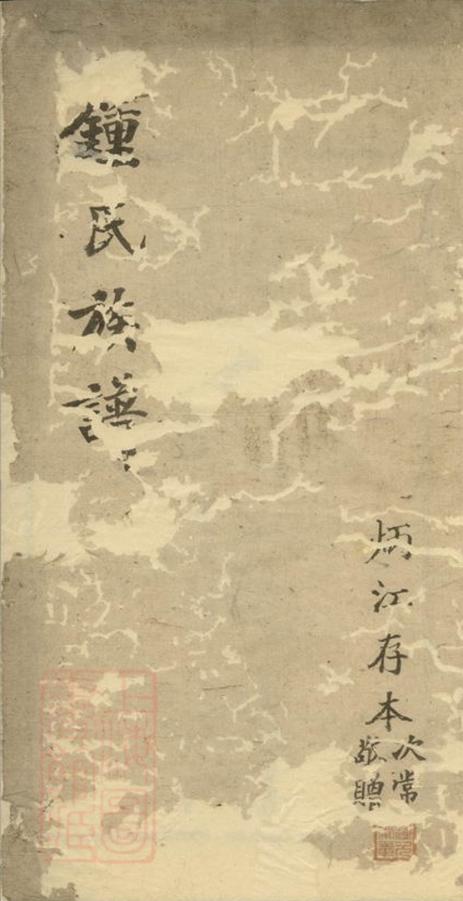 鍾氏族譜
炳江存本
次常
敬贈